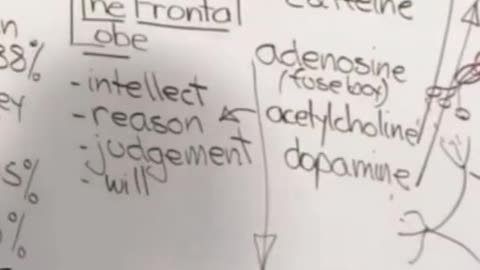 The Frontal
Lobe
- intellect
- reason
- judgement
- will
caffeine
adenosine
(fuse box)
acetylcholine
dopamine
38%
5%
%